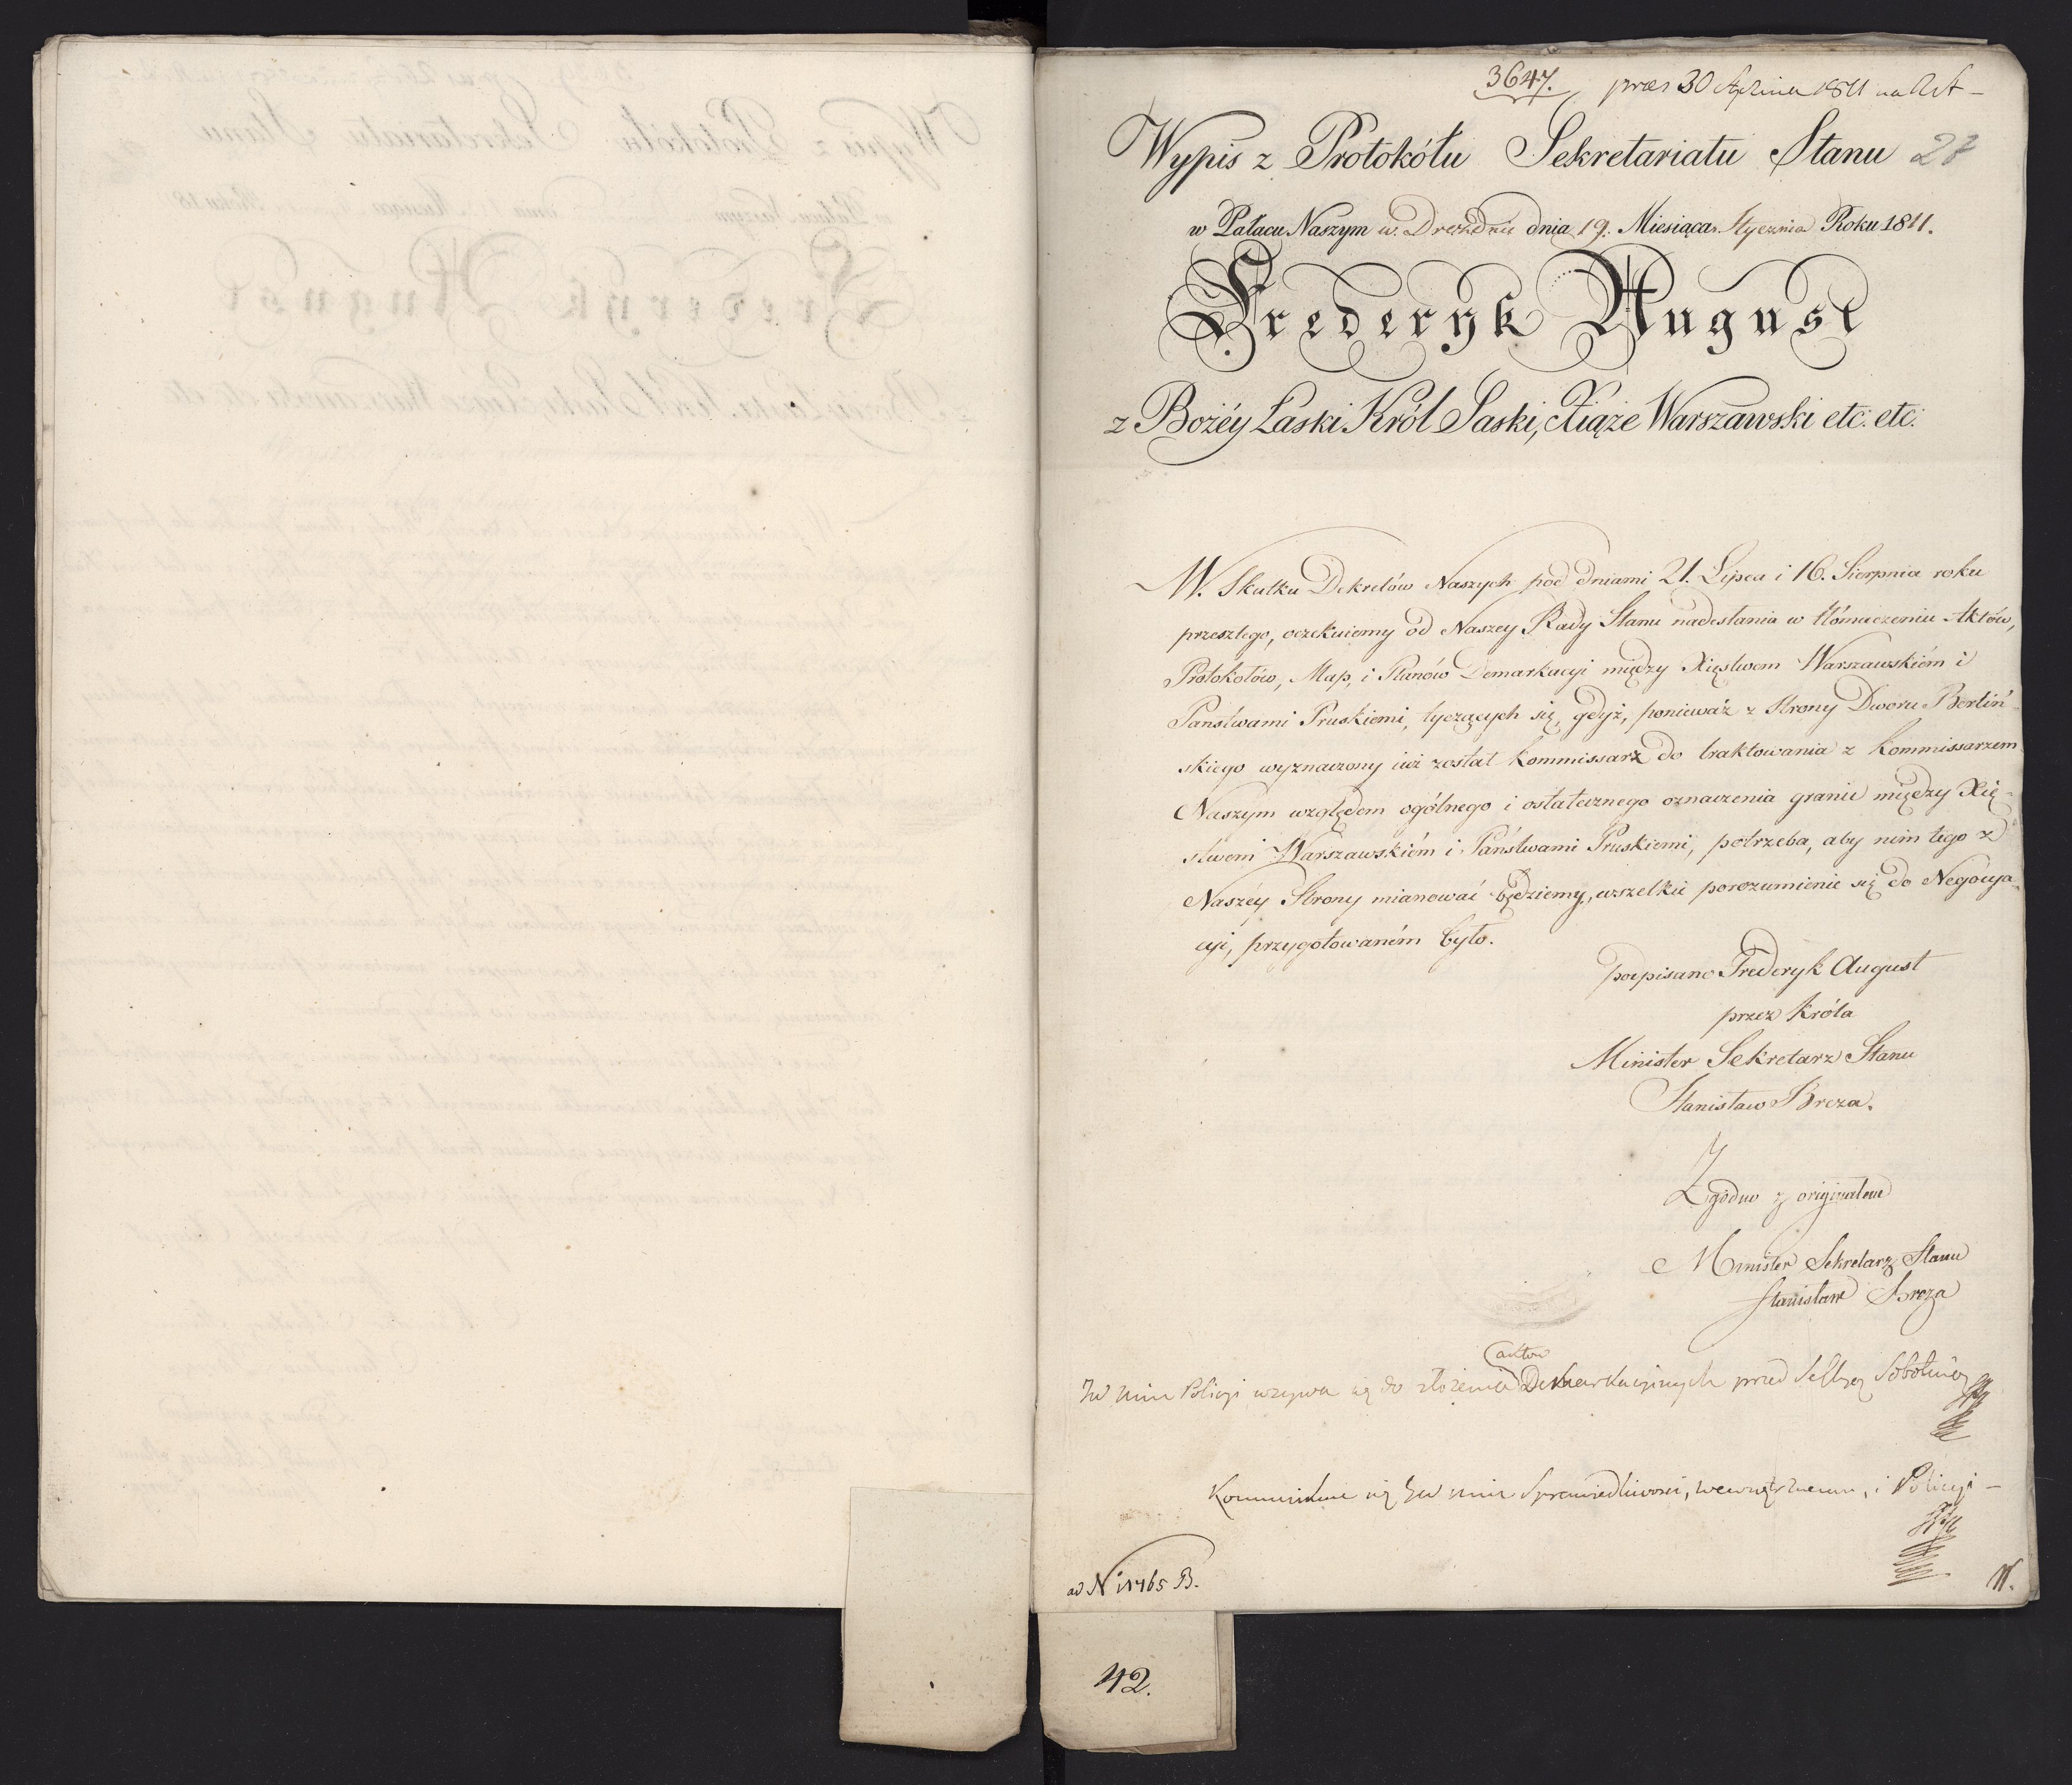 3647. præs 30 Stycznia 1811 na R S
Wypis z Protokółu Sekretariatu Stanu 27
w Pałacu Naszym w Dreźdnie dnia 19. Miesiąca Stycznia Roku 1811.
Frederyk August
z Bożéy Łaski Król Saski, Xiąże Warszawski etc: etc:
W Skutku Dekretów Naszych pod dniami 21. Lipca i 16. Sierpnia roku
przeszłego, oczekuiemy od Naszey Rady Stanu nadesłania w tłómaczeniu Aktów,
Protokołów, Map, i Planów Demarkacyi między Xięstwem Warszawskiém i
Państwami Pruskiemi, tyczących się, gdyż, ponieważ z Strony Dworu Berliń-
skiego wyznaczony iuż został Kommissarz do traktowania z Kommissarzem
Naszym względem ogólnego i ostatecznego oznaczenia granic między Xię-
stwem Warszawskiém i Państwami Pruskiemi, potrzeba, aby nim tego z
Naszéy Strony mianować będziemy, wszelkie porozumienie się do Negocya-
cyi, przygotowaném było.
podpisano Frederyk August
przez Króla
Minister Sekretarz Stanu
Stanisław Breza.
Zgodno z originałem
Minister Sekretarz Stanu
Stanisław Breza
aktów
JW Min Policyi wzywa się do złożenia Demarkacyinych przed Sessyą Sobotnią
Kommunikuie się JW Min Sprawiedliwości, wewnętrznemu, i Policyi –
ad N 11465 B.
N.
42.